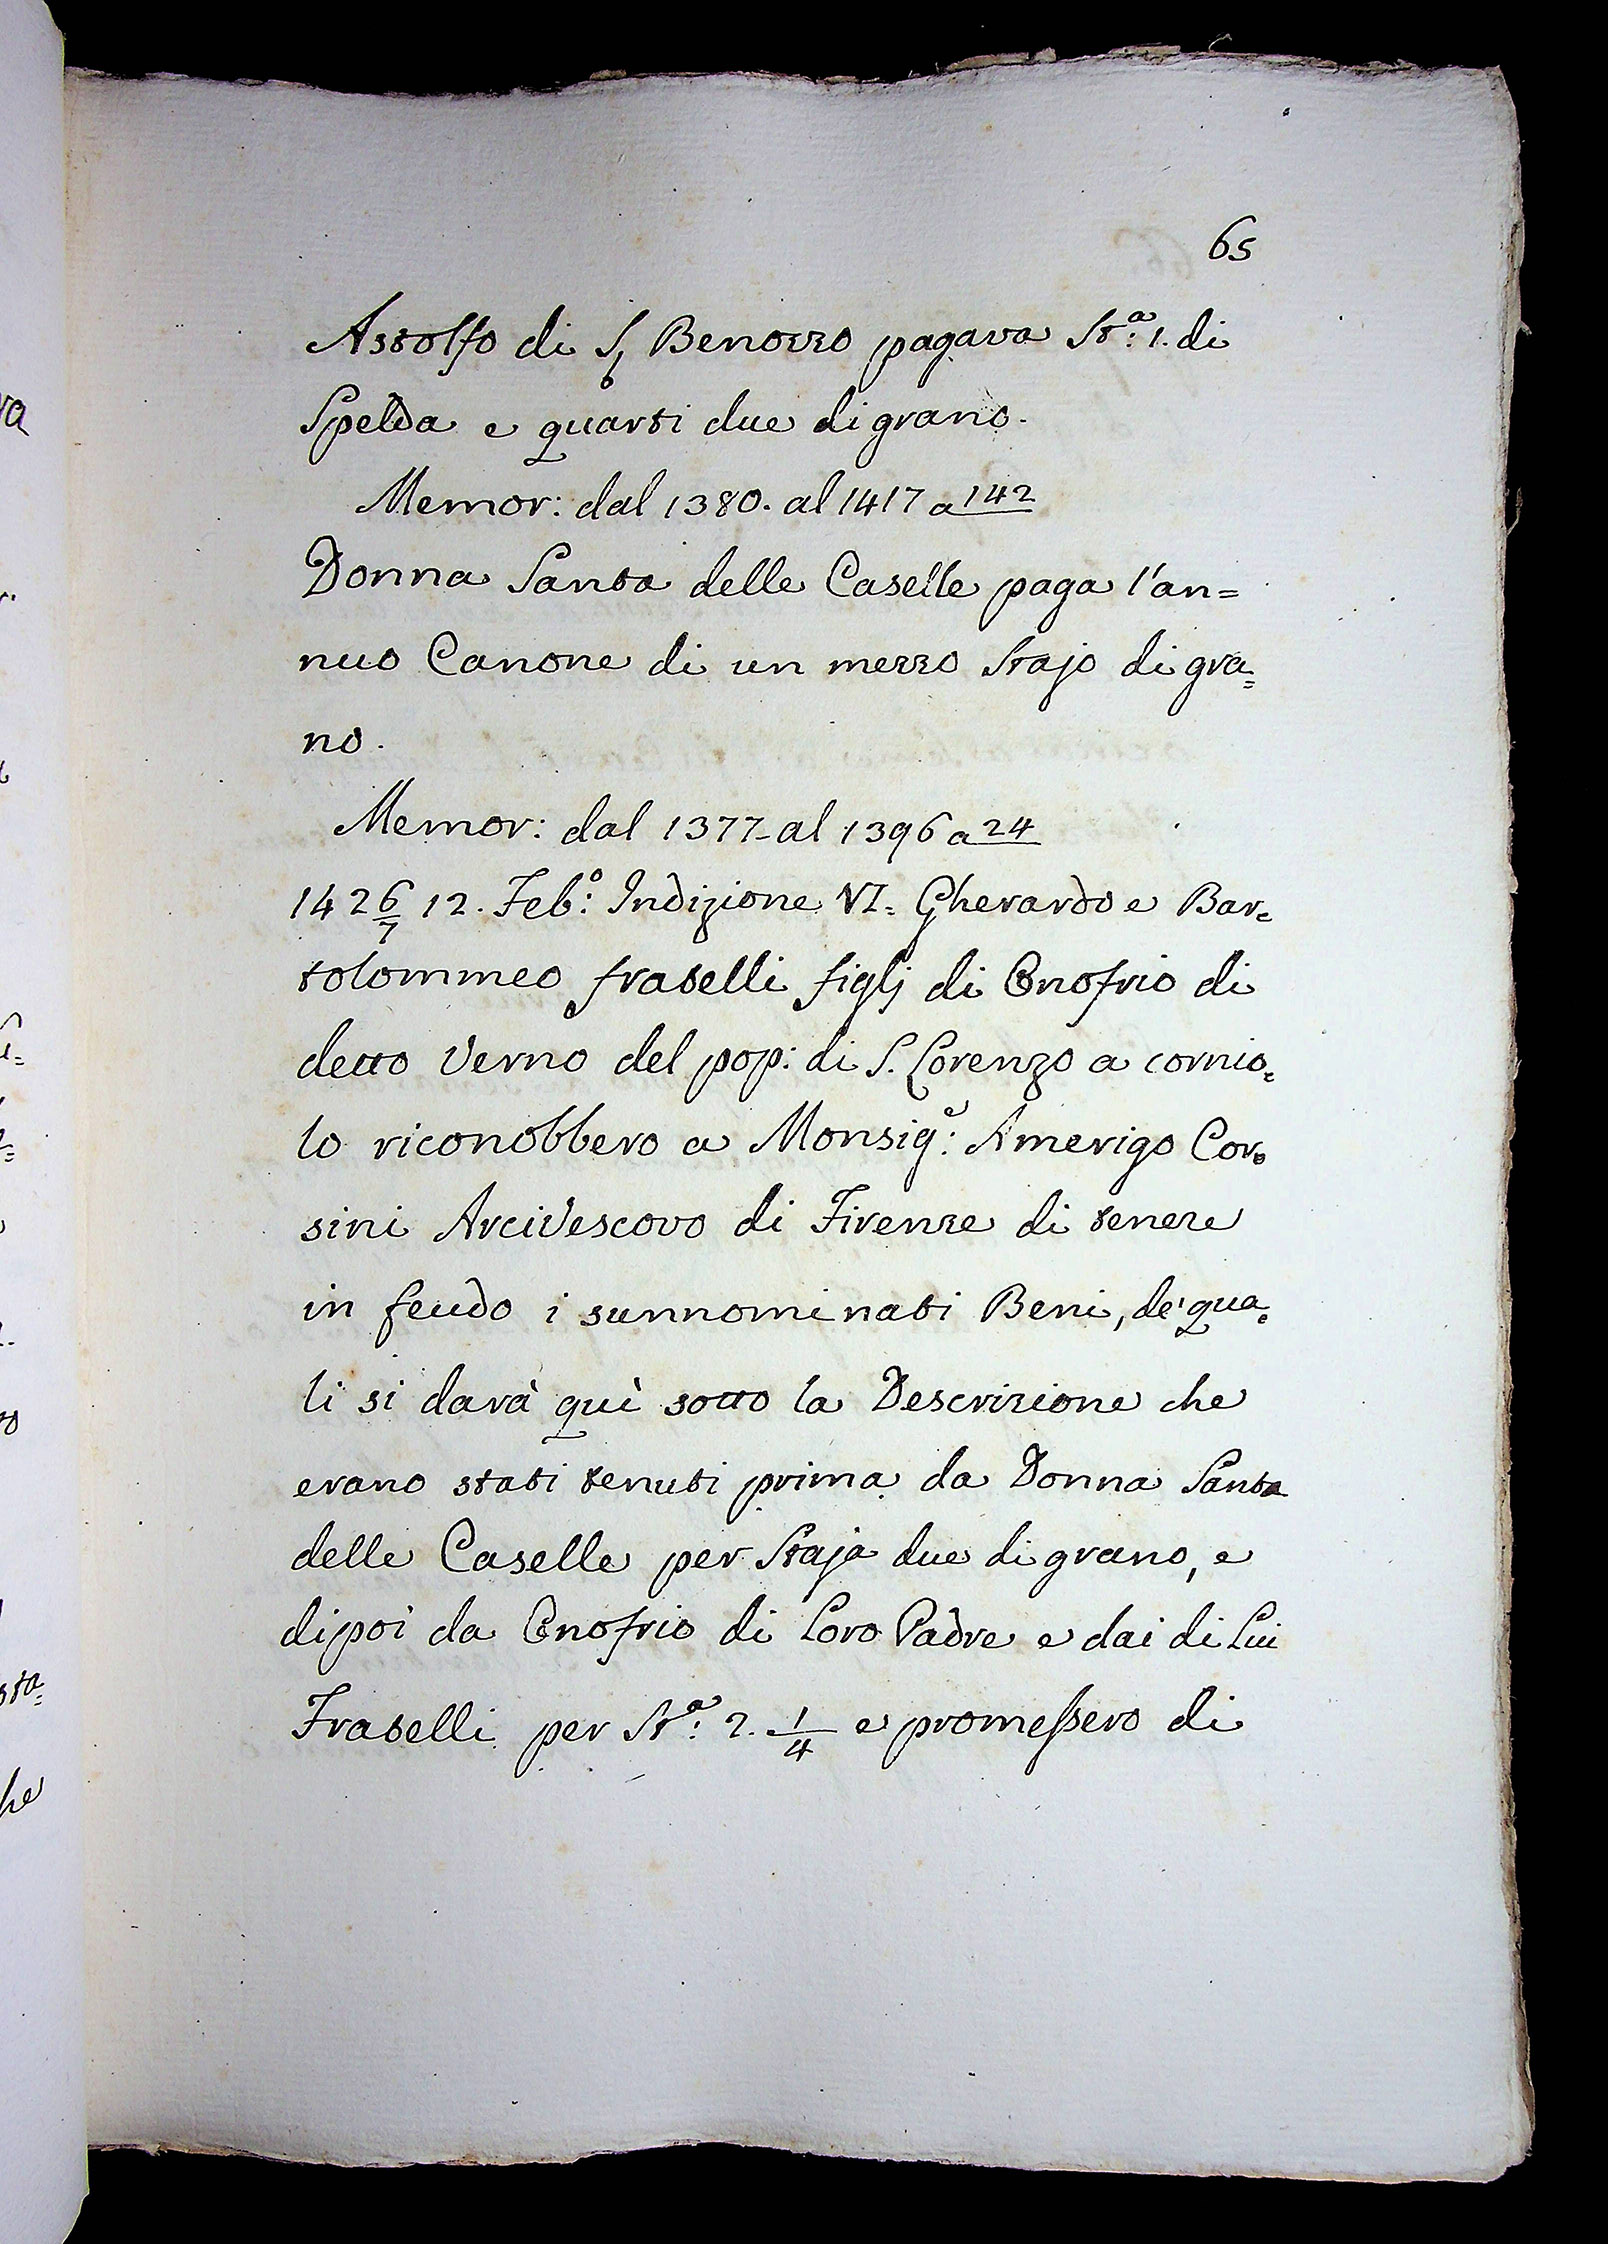 65
Astolfo di S. Benozzo pagava Sta: 1. di
Spelda e quarti due di grano.
Memor: dal 1380. al 1417 a 142
Donna Santa delle Caselle paga l'an=
nuo Canone di un mezzo Stajo di gra=
no.
Memor: dal 1377 al 1396 a 24
1426/7 12. Febo: Indizione VI= Gherardo e Bar=
tolommeo fratelli figlj di Onofrio di
detto Verno del pop: di S. Lorenzo a cornio=
lo riconobbero a Monsigr: Amerigo Cor=
sini Arcivescovo di Firenze di tenere
in feudo i sunnominati Beni, de' qua=
li si darà quì sotto la Descrizione che
erano stati tenuti prima da Donna Santa
delle Caselle per Staja due di grano, e
dipoi da Onofrio di Loro Padre e dai di Lui
Fratelli per Sta: 2. 1/4 e promessero di